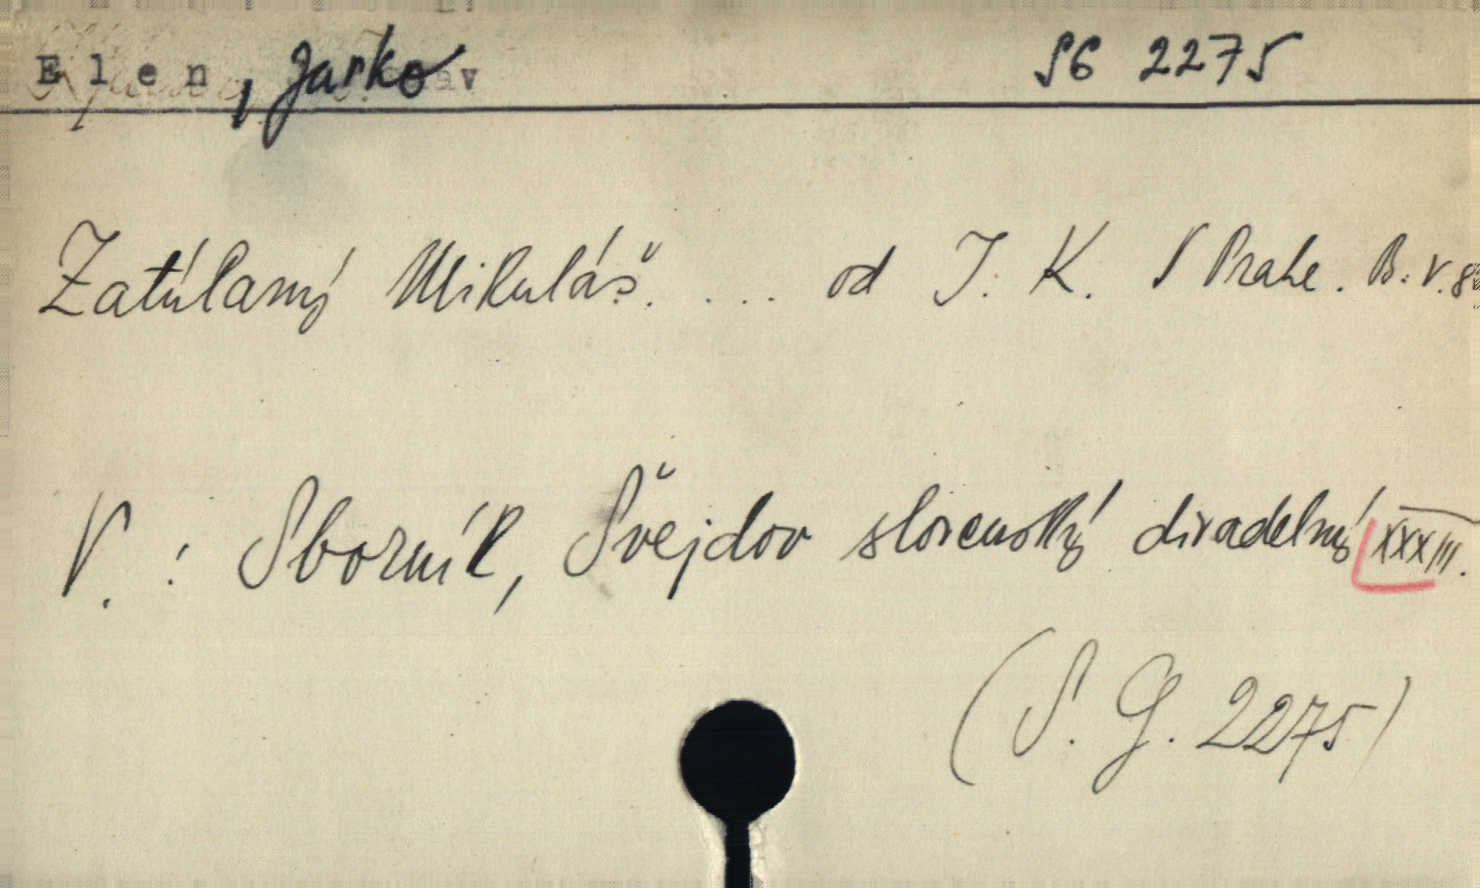 Elen, Jarko SG 2275
Zatúlaný Mikuláš. ... od J. K. V Prahe. B. v. 8°
V.: Sborník, Švejdov slovenský divadelný XXXIII.
(S. G. 2275)